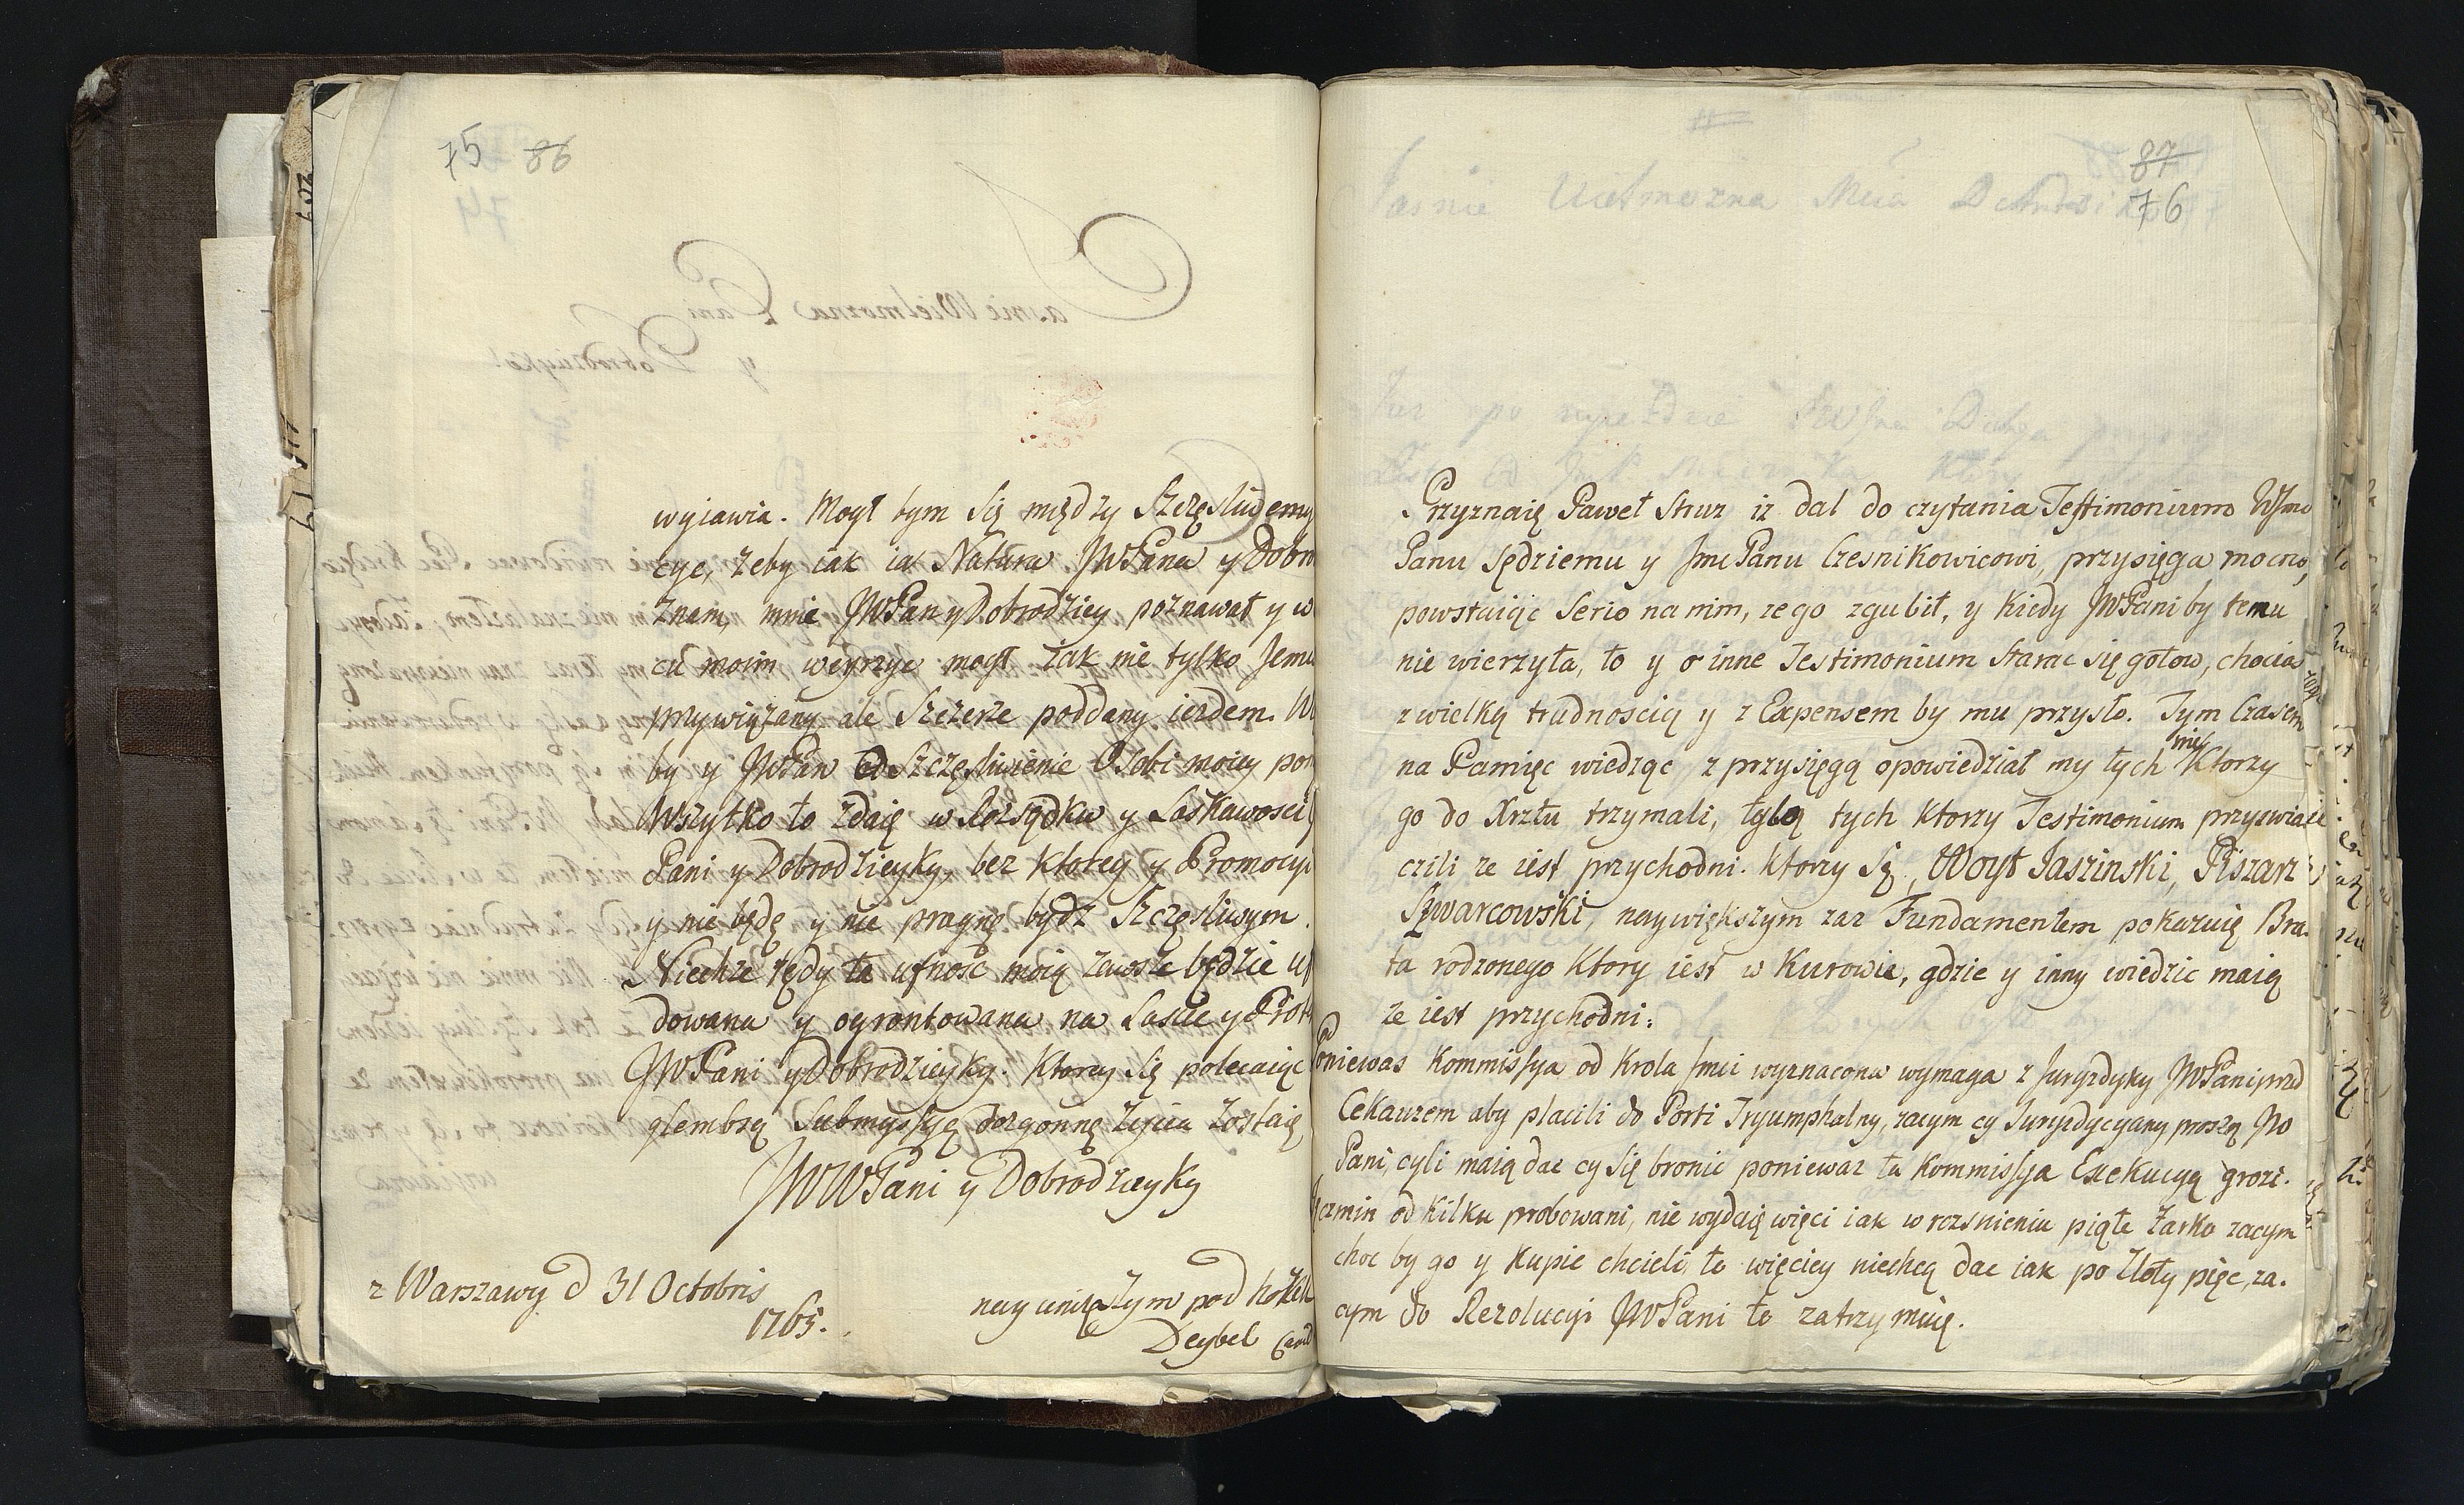 75 86
wyiawia. Mogł tym się między Szczęsliwemy
cyc, żeby iak ia Natura JWPana y Dobro
znam, mnie JWPan y Dobrodziey poznawał y w
cu moim weyrzyc mogł iak nie tylko Jemu
przywiązany ale Szczerze poddany iezdem. W
by y JWPan Szczęsliwienie Osobi moiey pom
Wszytko to zdaię w Rozsądku y Łaskawosci
Pani y Dobrodzieyky, bez ktorey y Promocyi
y nie będę y nie pragnę bydz Szczęsliwym.
Niechze tedy ta ufnosc moia zawsze będzie uf
dowana y ogrontowana na Łasce y Prot
JWPani y Dobrodzieyky. Ktorey się polecaiąc
głembszą Submyssyą dozgonną życia zostaię
JWWPani y Dobrodzieyky
z Warszawy d 31 Octobris
1765.
nayuniższym pod nożek
Deybel
87
76
Przyznaię Paweł Struz iz dal do czytania Testimonium WJmo
Panu Sędziemu y Jmc Panu Czesnikowicowi, przysięga mocno,
powstaiąc Serio na nim, ze go zgubił, y kiedy JWPani by temu
nie wierzyła, to y o inne Testimonium starac się gotow, chocias
z wielką trudnoscią y z Expensem by mu przysło. Tym Czasem
na Pamięc wiedząc z przysięgą opowiedział my tych nie Ktorzy
go do Krztu trzymali, tylo tych Ktorzy Testimonium przyswiad
czili ze iest przychodni. Ktorzy Są, Woyt Jaszinski, Piszarz
Szwarcowski, naywiększym zaz Fundamentem pokazuię Bra-
ta rodzonego Ktory iest w Kurowie, gdzie y inny wiedzic maią
ze iest przychodni:
Poniewas Kommissya od Krola Jmci wyznacona wymaga z Jurysdyky JWPani przed
Cekauzem aby płacili do Porti Tryumphalny, zacym cy Jurysdycyany proszą JW
Pani, cyli maią dac cy się bronic poniewaz ta Kommissya Exekucyą grozi.
Jęczmin od Kilku probowani, nie wydaię więci iak w rozsnieniu piąte Zarko zacym
choc by go y Kupic chcieli, to więciey niechcą dac iak po Złoty pięc, za-
cym do Rezolucyi JWPani to zatrzymuię.